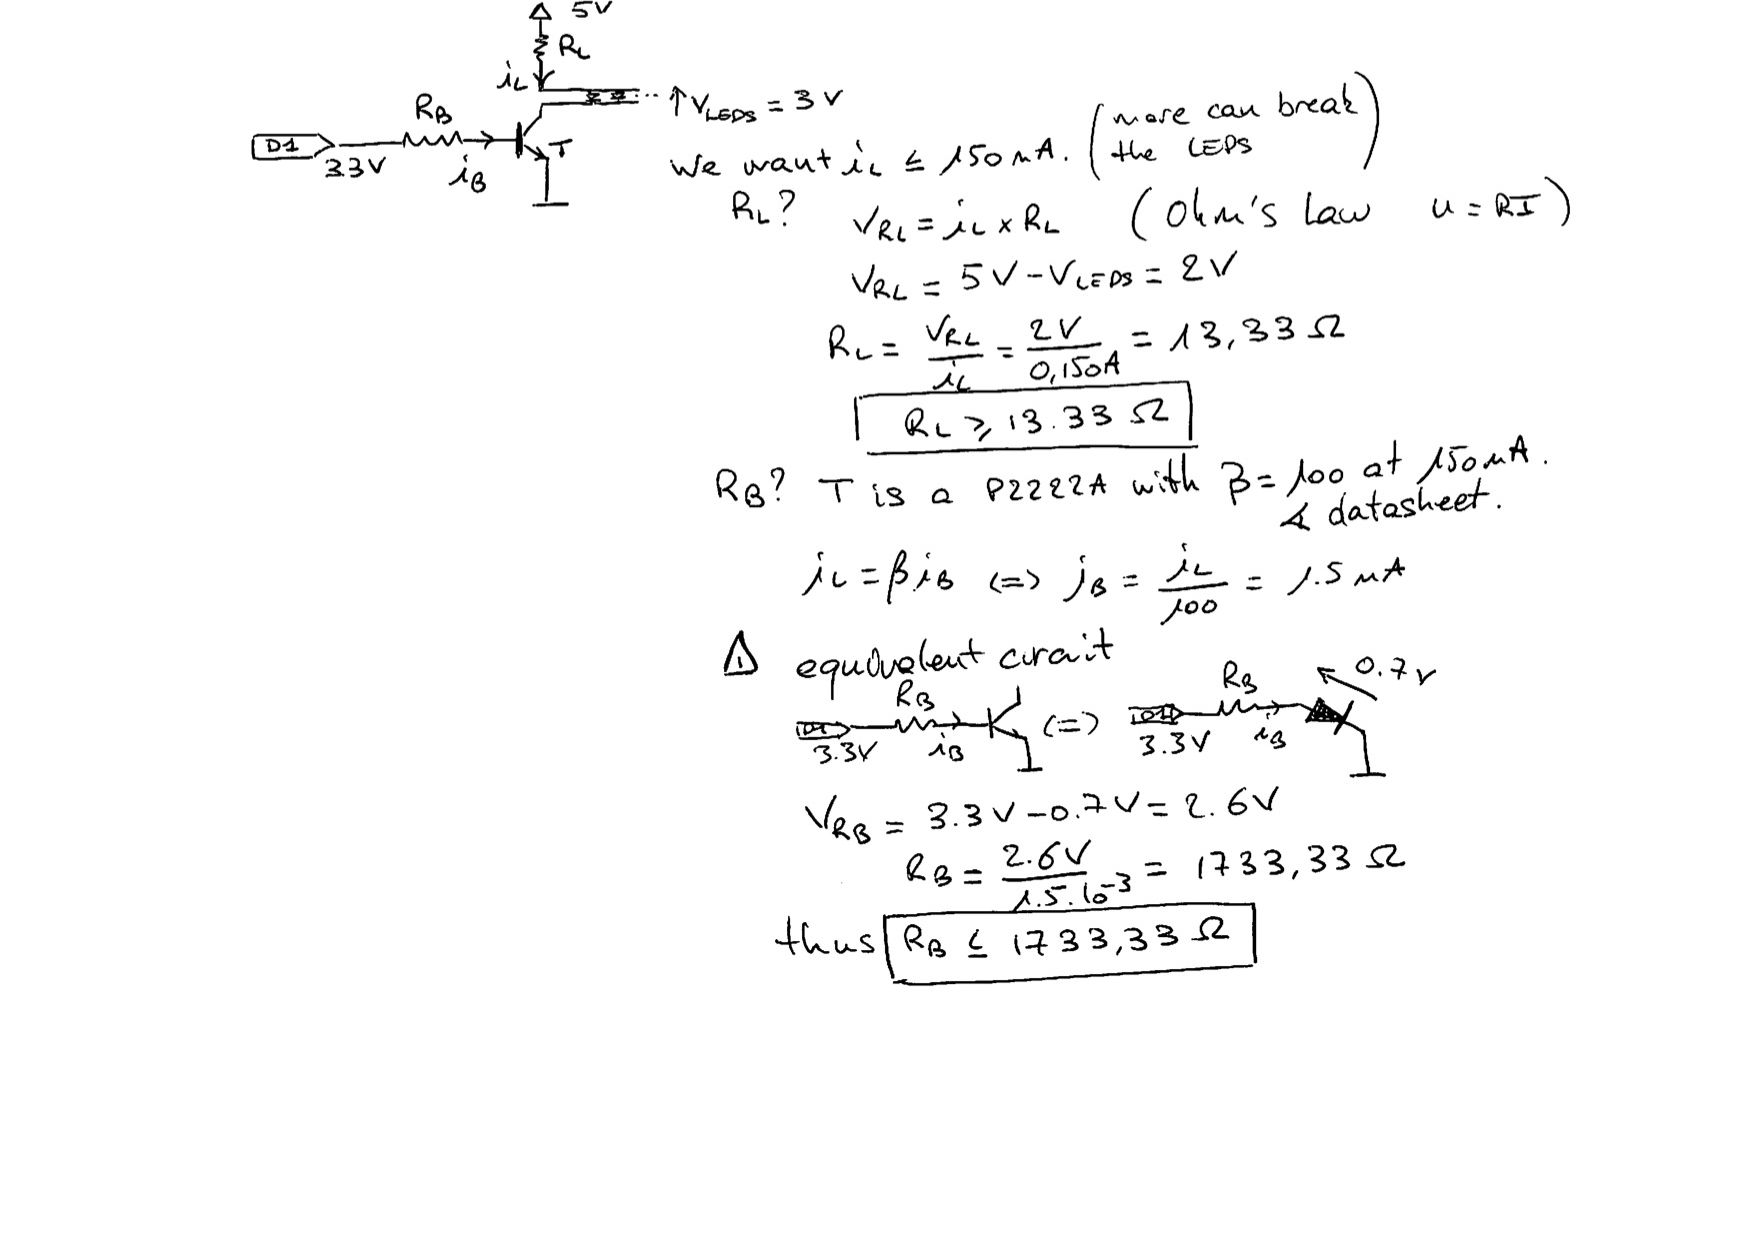 5V
RL
iL
RB
↑VLEDS = 3V
D1
3.3V
iB
T
We want iL ≤ 150mA. (more can break
the LEDS)
RL? VRL = iL x RL (Ohm's Law u = RI)
VRL = 5V - VLEDS = 2V
RL = VRL / iL = 2V / 0,150A = 13,33 Ω
RL ≥ 13.33 Ω
RB? T is a P2222A with β = 100 at 150mA.
datasheet.
iL = β iB <=> iB = iL / 100 = 1.5 mA
⚠ equivalent circuit
RB RB 0.7V
D1 <=> D1
3.3V iB 3.3V iB
VRB = 3.3V - 0.7V = 2.6V
RB = 2.6V / 1.5.10^-3 = 1733,33 Ω
thus RB ≤ 1733,33 Ω